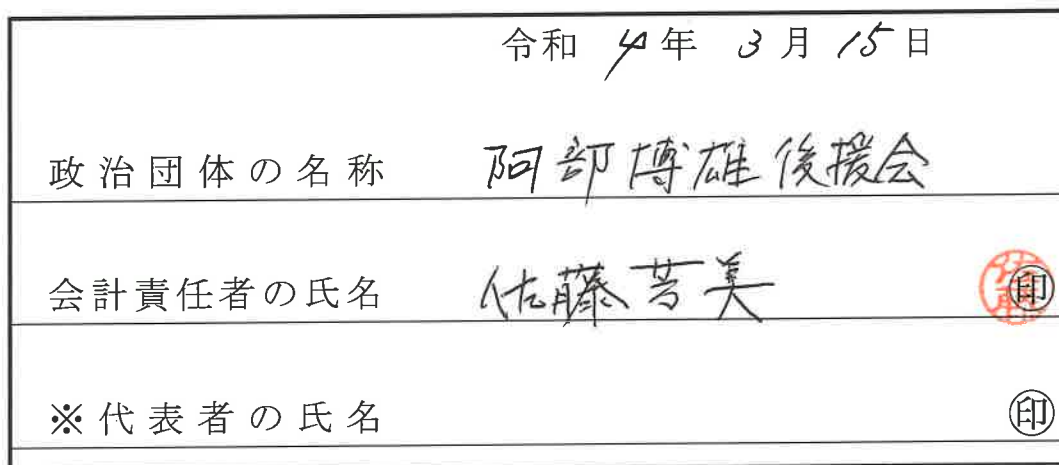 令和 4年 3月 15日
政治団体の名称 阿部博雄後援会
会計責任者の氏名 佐藤芳美 印
※代表者の氏名 印